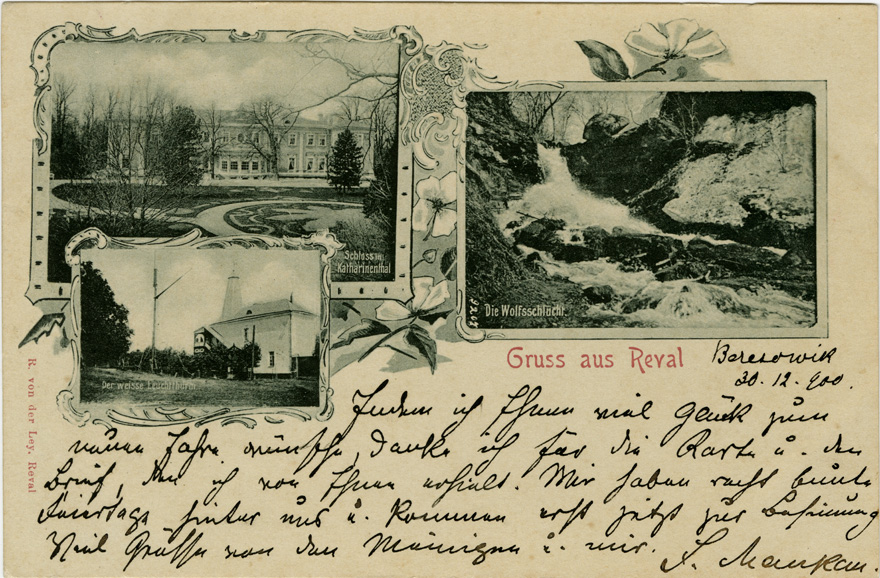 Schloss in
Katharinenthal
Die Wolfsschlucht.
Der weisse Leuchtthurm
Gruss aus Reval
R. von der Ley, Reval
30. 12. 900.
Indem ich Ihnen viel Glück zum
neuen Jahre wünsche, danke ich für die Karte u. den
Brief, den ich von Ihnen erhielt. Wir haben recht bunte
Feiertage hinter uns u. kommen erst jetzt zur Besinnung
Viel Grüsse von den Meinigen u. mir.